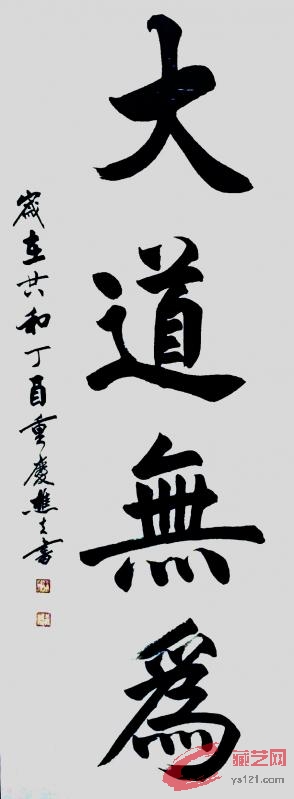 大道無爲
歲在共和丁酉重慶樵夫書
藏艺网
ys121.com